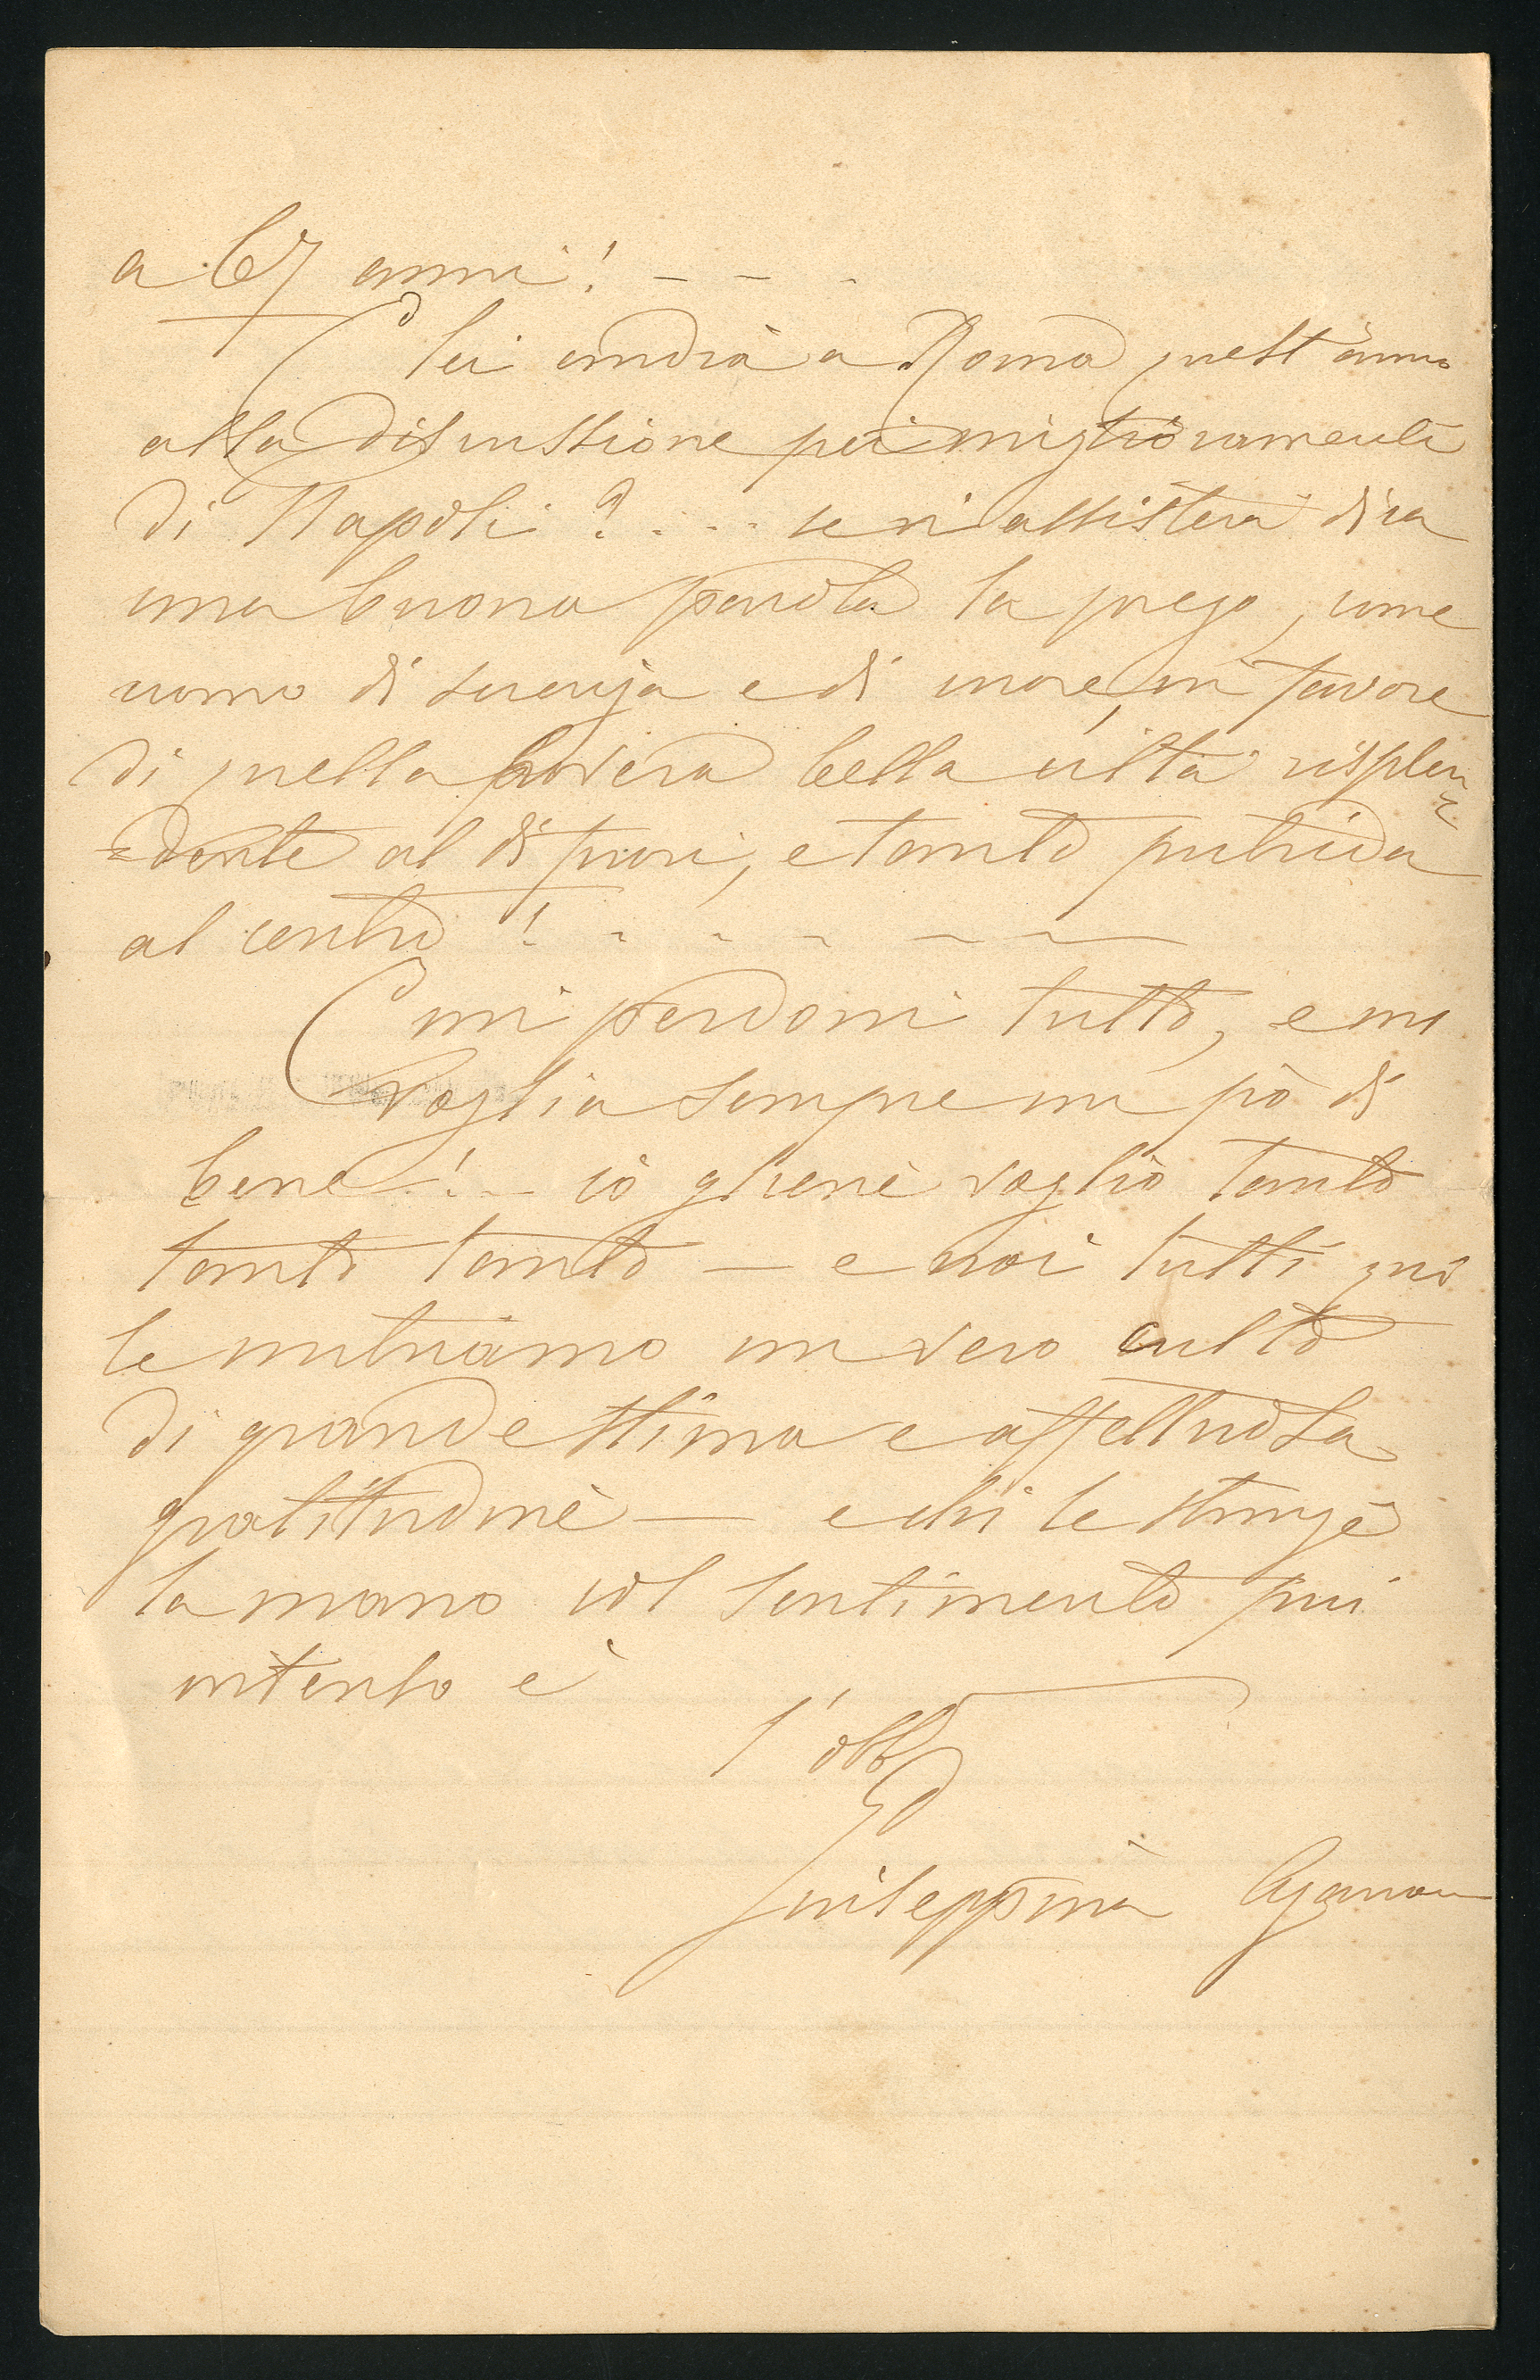 a 67 anni! - - -
E lei andrà a Roma quest'anno
alla discussione pei miglioramenti
di Napoli? .... se vi assisterà dica
una buona parola la prego, come
uomo di scienza e di cuore, in favore
di quella povera bella città risplen=
=dente al di fuori, e tanto putrida
al centro! - - - - -
E mi perdoni tutto, e mi
voglia sempre un pò di
bene! - io gliene voglio tanto
tanto tanto — e noi tutti quì
le nutriamo un vero culto
di grande stima e affettuosa
gratitudine — e chi le stringe
la mano col sentimento più
intenso è
l'obb
Giuseppina